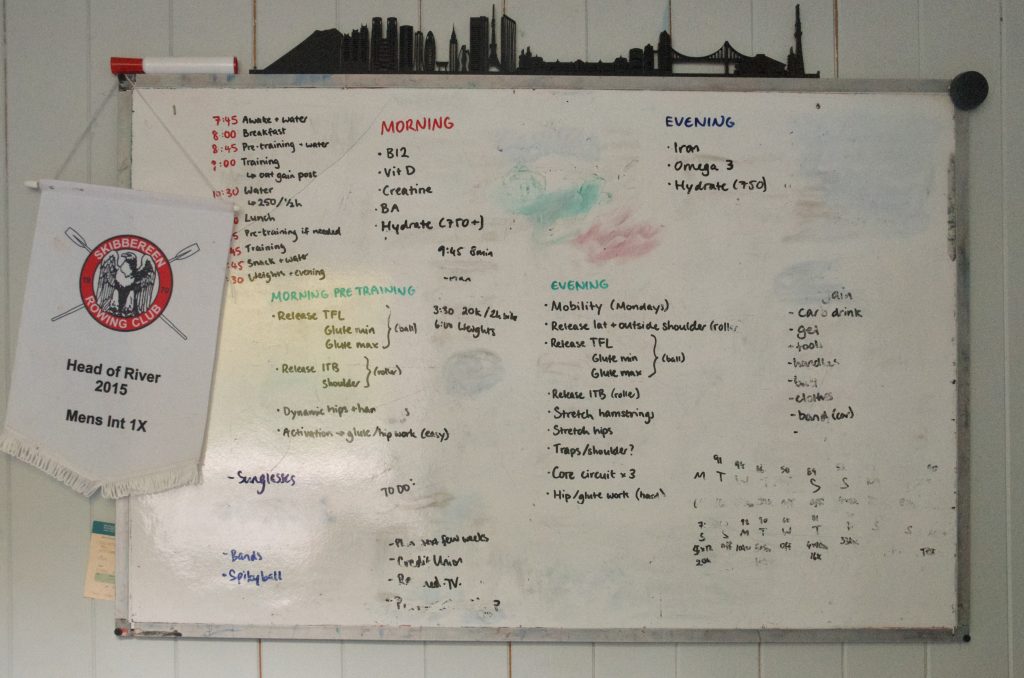 7:45 Awake + water
8:00 Breakfast
8:45 Pre-training + water
:00 Training
↳ gain post
10:30 Water
↳ 250/½h
Lunch
Pre-training if needed
Training
:45 Snack + water
:30 Weights + evening
MORNING
· B12
· Vit D
· Creatine
· BA
· Hydrate (750+)
9:45 8min
EVENING
· Iron
· Omega 3
· Hydrate (750)
SKIBBEREEN
ROWING CLUB
Head of River
2015
Mens Int 1X
MORNING PRE TRAINING
· Release TFL
Glute min
Glute max
(ball)
· Release ITB
shoulder
(roller)
· Dynamic hips + ham s
· Activation → glute/hip work (easy)
3:30 20k / 2h bike
6:00 Weights
EVENING
· Mobility (Mondays)
· Release lat + outside shoulder (roll
· Release TFL
Glute min
Glute max
(ball)
· Release ITB (roller)
· Stretch hamstrings
· Stretch hips
· Traps/shoulder?
· Core circuit x 3
· Hip/glute work
- drink
- tools
- handles
- clothes
- band (car)
- Sunglasses
TO DO:
- next few weeks
- Credit Union
- TV
- Bands
- Spikyball
M T W T S S M
S S M T W T
off off
20k 16k